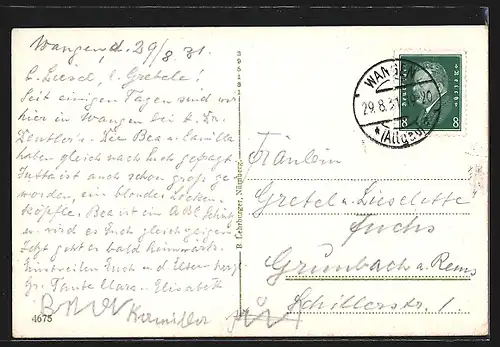 Wangen, d. 29/8.31.
L. Liesel, l. Gretele!
Seit einigen Tagen sind wir
hier in Wangen bei
Die Bea u.
haben gleich nach Euch gefragt.
Jutta ist auch schon groß ge
worden, ein blonder Locken
köpfle. Bea ist ein ABC Schütz
wird es Euch gleich
Jetzt geht es bald heimwärts.
Einstweilen Euch und Eltern herzl.
Gr. Tante Clara. Elisabeth
4675
B. Lehrburger, Nürnberg
WANGEN
29.8.31
*(Allgäu)
8
8
Fräulein
Gretel u. Lieselotte
Fuchs
Grunbach a. Rems
Schillerstr. 1.